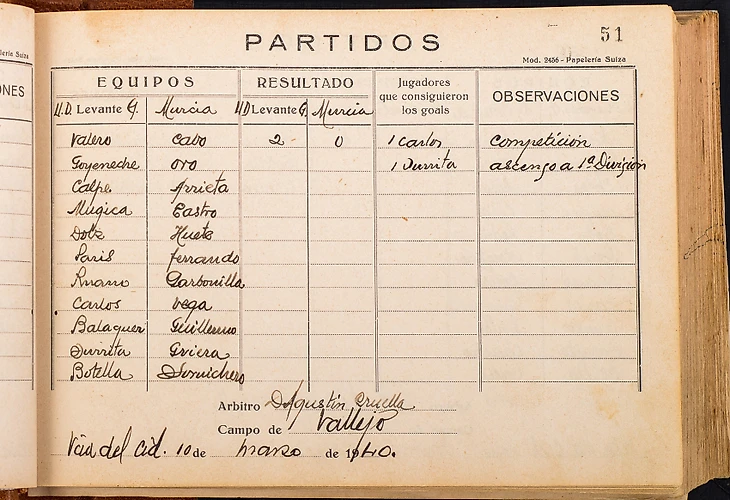 51
PARTIDOS
Mod. 2456 - Papelería Suiza
EQUIPOS RESULTADO Jugadores que consiguieron los goals OBSERVACIONES
U.D. Levante G. Murcia UD Levante G. Murcia
Valero Cabo 2 - 0 1 Carlos Competición
Goyeneche Oro 1 Durrita ascenso a 1ª División
Calpe Arrieta
Mugica Castro
Dolz Huete
Paris Ferrando
Garbonilla
Carlos Vega
Balaguer Guillermo
Durrita Griera
Botella
Arbitro D Agustín Cruella
Campo de Vallejo
Vcia del Cid. 10 de marzo de 1940.